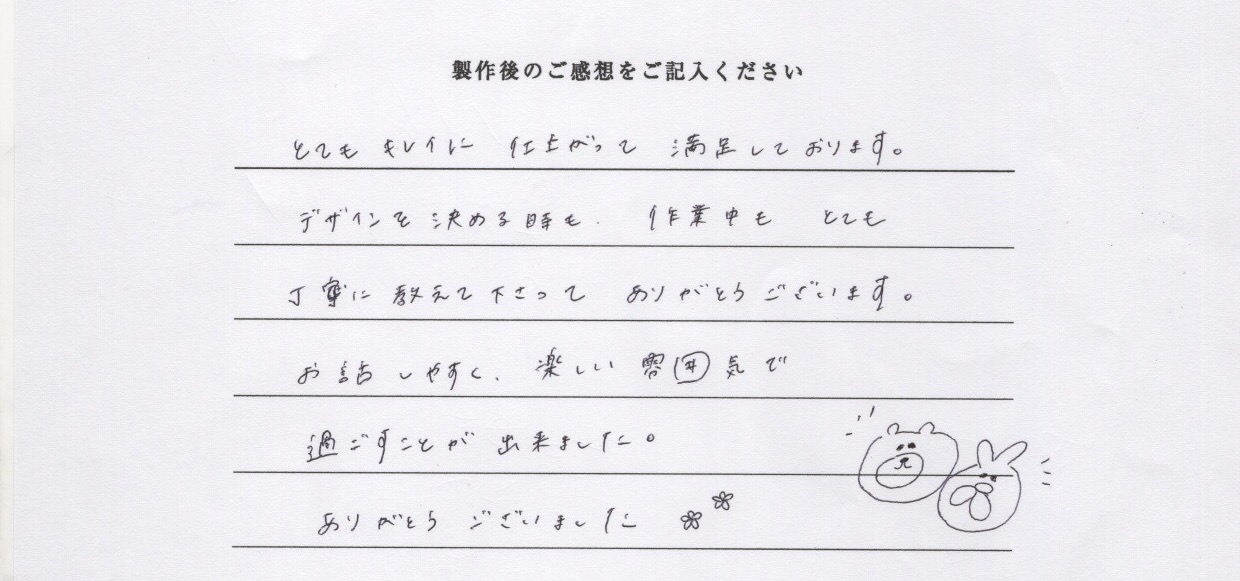 製作後のご感想をご記入ください
とてもキレイに 仕上がって 満足しております。
デザインを決める時も、作業中も とても
丁寧に教えて下さって ありがとうございます。
お話しやすく、楽しい雰囲気で
過ごすことが 出来ました。
ありがとう ございました